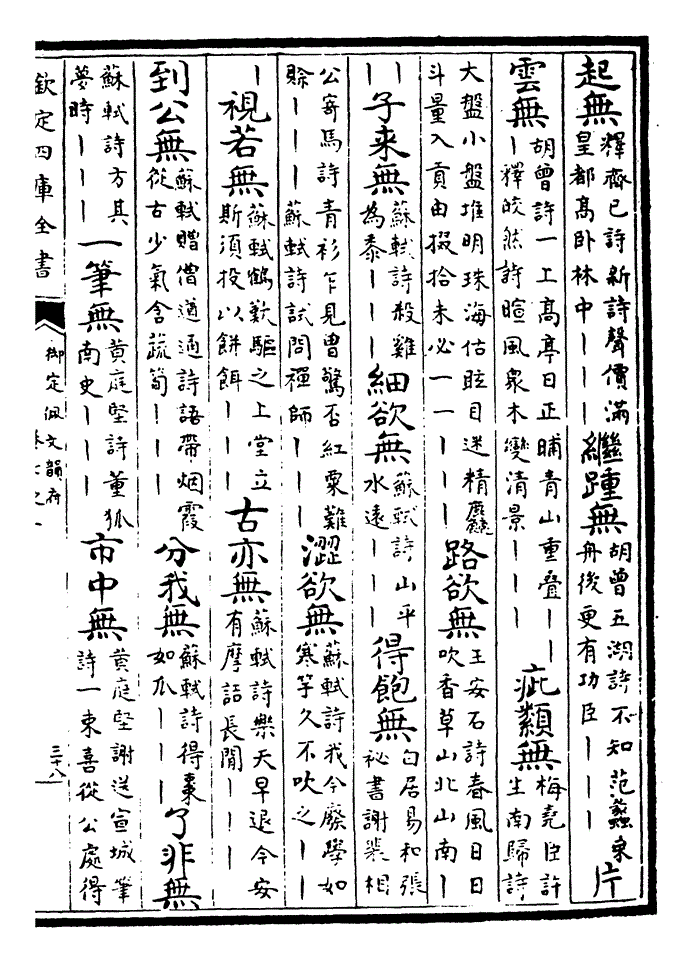 起無
釋齊已詩新詩聲價滿
皇都高卧林中｜｜｜
繼踵無
胡曾五湖詩不知范蠡乗
舟後更有功臣｜｜｜
片
雲無
胡曾詩一上高亭日正晡青山重叠｜｜
｜釋皎然詩暄風衆木變清景｜｜｜
疵纇無
梅堯臣許
生南歸詩
大盤小盤堆明珠海估眩目迷精麤
斗量入貢由掇拾未必一一｜｜｜
路欲無
王安石詩春風日日
吹香草山北山南｜
｜｜
子来無
蘇軾詩殺雞
為黍｜｜｜
細欲無
蘇軾詩山平
水遠｜｜｜
得飽無
白居易和張
祕書謝裴相
公寄馬詩青衫乍見曾驚否紅粟難
賒｜｜｜蘇軾詩試問禪師｜｜｜
澀欲無
蘇軾詩我今廢學如
寒竽久不吹之｜｜
｜
視若無
蘇軾鶴歎驅之上堂立
斯須投以餅餌｜｜｜
古亦無
蘇軾詩樂天早退今安
有摩詰長閒｜｜｜
到公無
蘇軾贈僧道通詩語帶烟霞
從古少氣含蔬筍｜｜｜
分我無
蘇軾詩得棗
如瓜｜｜｜
了非無
蘇軾詩方其
夢時｜｜｜
一筆無
黄庭堅詩董狐
南史｜｜｜
市中無
黄庭堅謝送宣城筆
詩一束喜從公處得
欽定四庫全書
御定佩文韻府
卷七之一
三十八